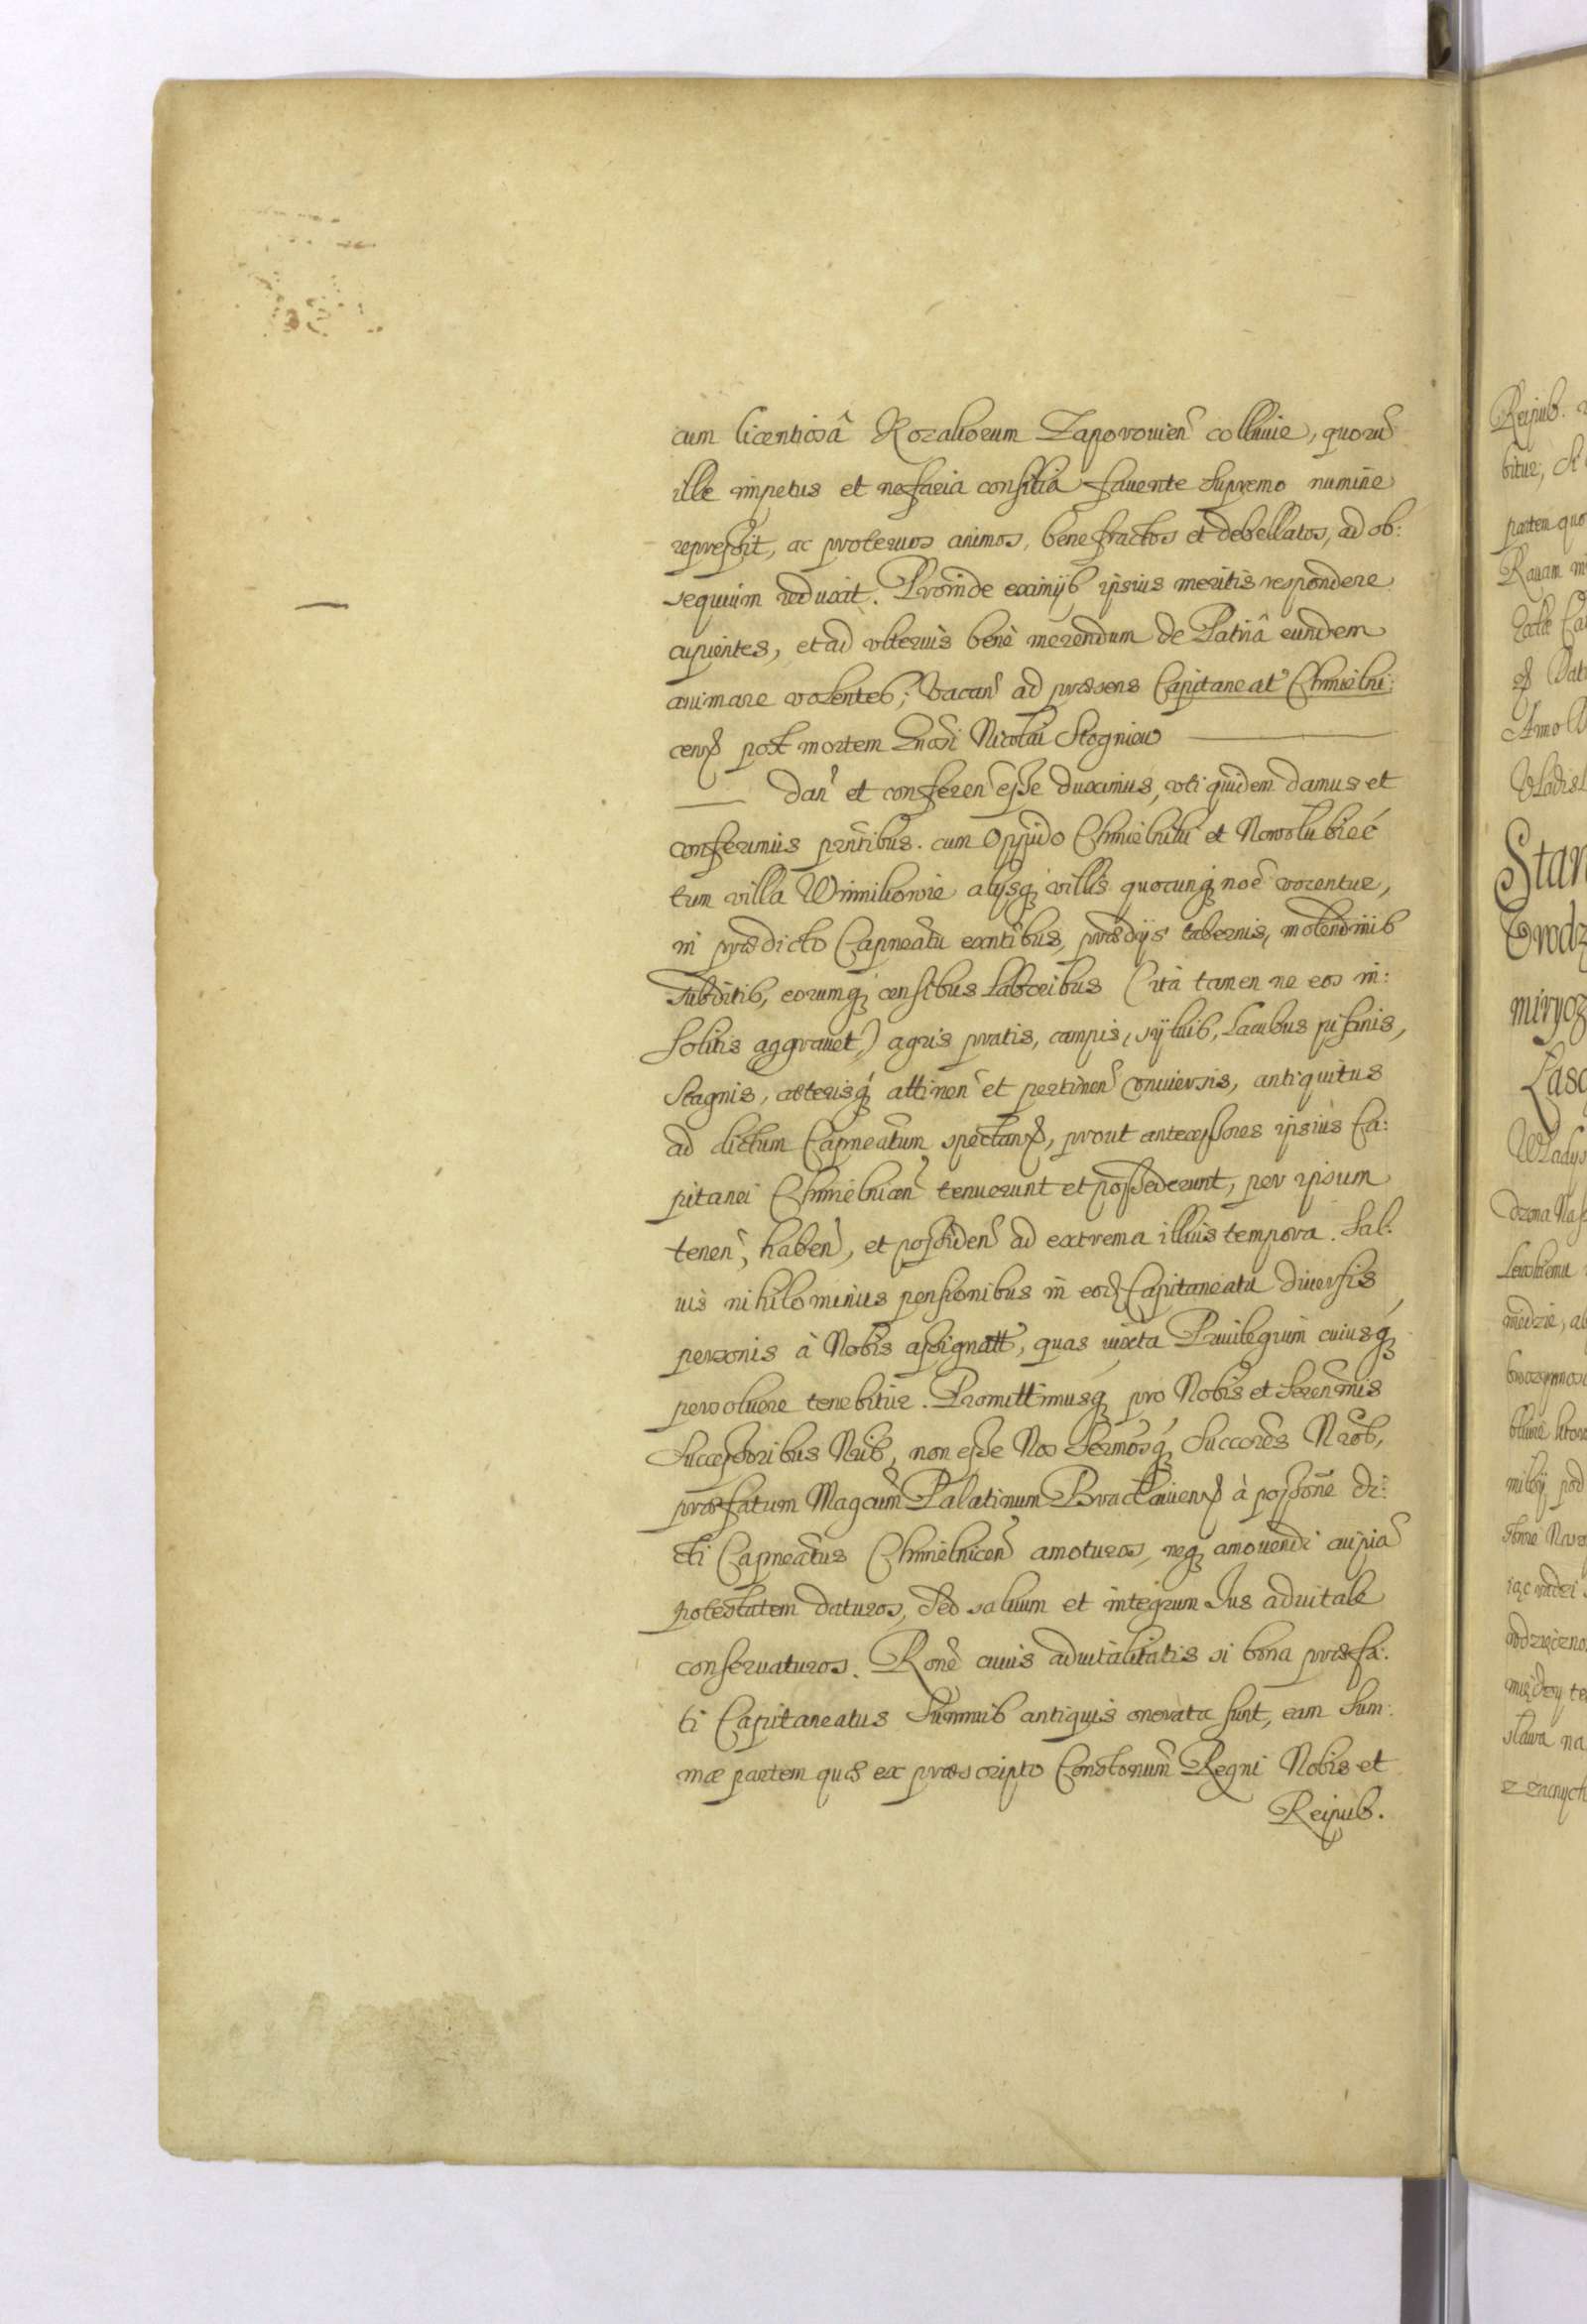 cum licentiosâ Kozakorum Zaporovien̄ colluuie, quorū
ille impetus et nefaria consilia fauente supremo numine
repressit, ac proteruos animos, bene fractos et debellatos, ad ob:
sequium reduxit. Proinde eximijs ipsius meritis respondere
cupientes, et ad vlterius benè merendum de Patriâ eundem
animare volentes; Vacan̄ ad præsens Capitaneat Chmielni:
cen̄ post mortem Nicolai Stogniew
dan̄ et conferen̄ esse duximus, vti quidem damus et
conferimus prntibus. cum Oppido Chmielniki et
tum villa Winnikowie alysq; villis quocunq; noē vocentur,
in prædicto Capneatu exntibus, prædijs tabernis, molendinis
Subditis, eorumq; censibus Laboribus (ità tamen ne eos in:
solitis aggrauet) agris pratis, campis, syluis, Lacubus piscinis,
Stagnis, alterisq; attinen̄ et pertinen̄ vniuersis, antiquitus
ad dictum Capneatum spectan̄, prout antecessores ipsius Ca:
pitanei Chmielnicen̄ tenuerunt et possederunt, per ipsum
tenen̄, haben̄, et possiden̄ ad extrema illius tempora. Sal:
uis nihilominus pensionibus in eod Capitaneatu diuersis
personis à Nobis assignatt, quas iuxta Priuilegium cuiusq;
persoluere tenebitur. Promittimusq; pro Nobis et Serenmis
Successoribus Nris, non esse Nos Sermosq; Succores Nros,
præfatum Magcum Palatinum Braclauien̄ à possone di:
cti Capneatus Chmielnicen̄ amoturos, neq; amouendi cuipiā
potestatem daturos, sed saluum et integrum Ius aduitale
conseruaturos. Ronē cuius aduitalitatis si bona præfa:
ti Capitaneatus Summis antiquis onerata sunt, eam Sum:
mæ partem quæ ex præscripto Constonum Regni Nobis et
Reipub.
Reipub.
bitur, Si
partem quo
Stan
miryoz
Lasc
Wladys
miedzie, al
miley pod
miedzy te
slawa na
z zacnych